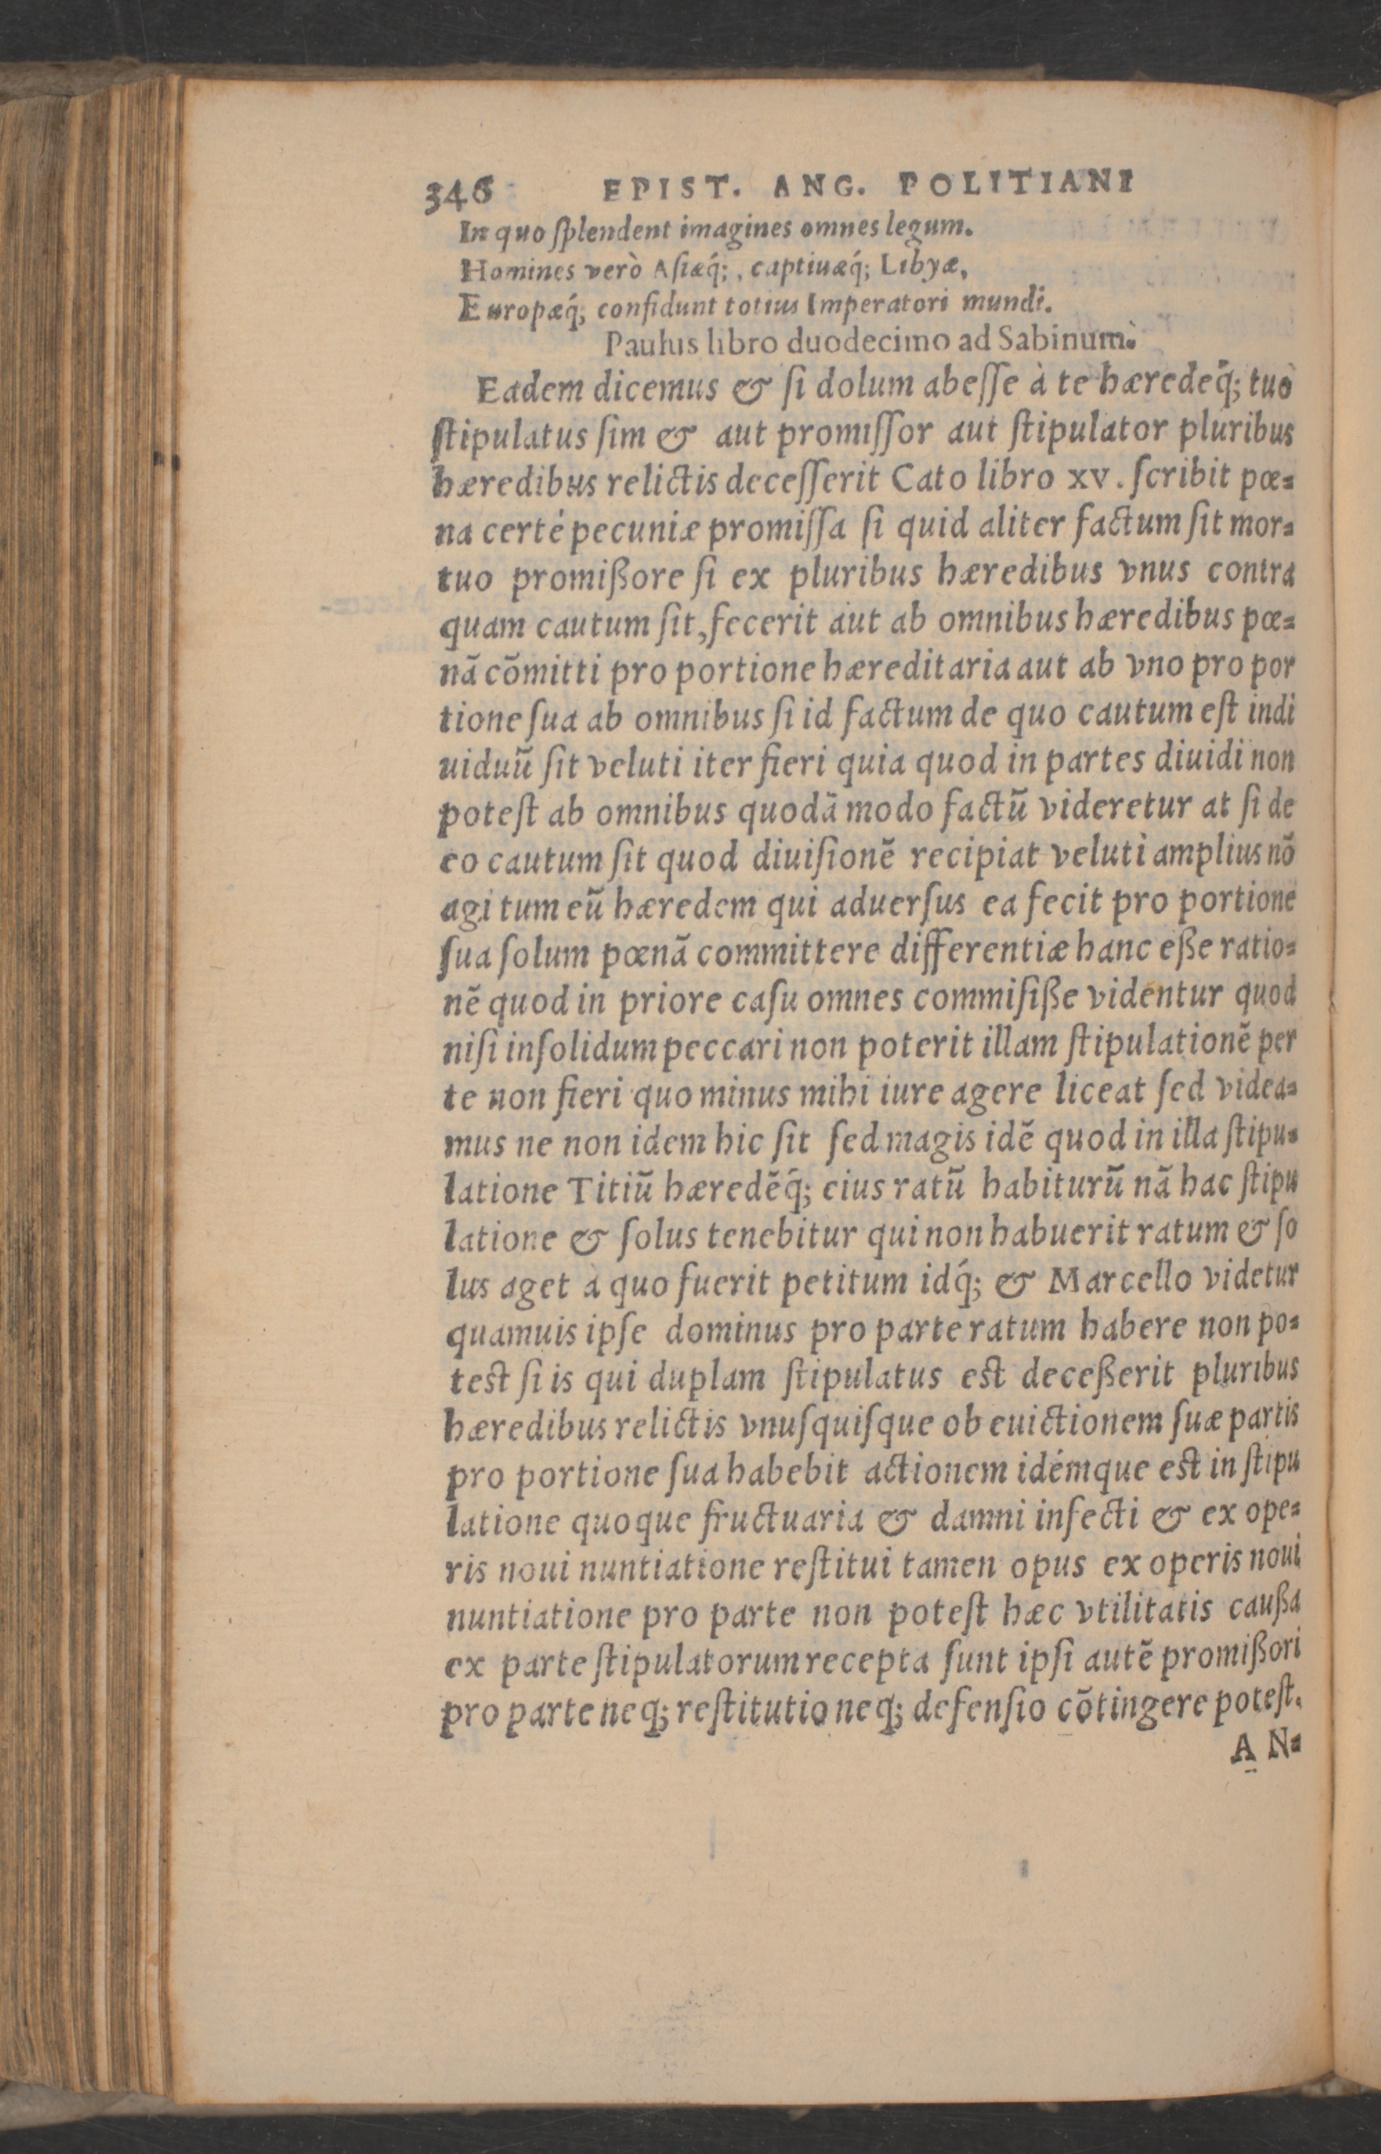 346 EPIST. ANG. POLITIANI
In quo ſplendent imagines omnes legum.
Homines verò Aſiæq́;, captiuæq́; Libyæ,
Europæq́; confidunt totius Imperatori mundi.
Paulus libro duodecimo ad Sabinum.
Eadem dicemus & ſi dolum abeſſe à te hæredeq́; tuo
ſtipulatus ſim & aut promiſſor aut ſtipulator pluribus
hæredibus relictis deceſſerit Cato libro xv. ſcribit pœ-
na certé pecuniæ promiſſa ſi quid aliter factum ſit mor-
tuo promißore ſi ex pluribus hæredibus vnus contra
quam cautum ſit, fecerit aut ab omnibus hæredibus pœ-
nã cõmitti pro portione hæreditaria aut ab vno pro por
tione ſua ab omnibus ſi id factum de quo cautum eſt indi
uiduũ ſit veluti iter fieri quia quod in partes diuidi non
poteſt ab omnibus quodã modo factũ videretur at ſi de
eo cautum ſit quod diuiſionẽ recipiat veluti amplius nõ
agi tum eũ hæredem qui aduerſus ea fecit pro portione
ſua ſolum pœnã committere differentiæ hanc eße ratio-
nẽ quod in priore caſu omnes commiſiße videntur quod
niſi inſolidum peccari non poterit illam ſtipulationẽ per
te non fieri quo minus mihi iure agere liceat ſed videa-
mus ne non idem hic ſit ſed magis idẽ quod in illa ſtipu-
latione Titiũ hæredẽq́; eius ratũ habiturũ nã hac ſtipu
latione & ſolus tenebitur qui non habuerit ratum & ſo
lus aget à quo fuerit petitum idq́; & Marcello videtur
quamuis ipſe dominus pro parte ratum habere non po-
test ſi is qui duplam ſtipulatus est deceßerit pluribus
hæredibus relictis vnuſquiſque ob euictionem ſuæ partis
pro portione ſua habebit actionem idémque est in ſtipu
latione quoque fructuaria & damni infecti & ex ope-
ris noui nuntiatione reſtitui tamen opus ex operis noui
nuntiatione pro parte non poteſt hæc vtilitatis cauſſa
ex parte ſtipulatorum recepta ſunt ipſi autẽ promißori
pro parte neq; reſtitutio neq; defenſio cõtingere poteſt.
A N-